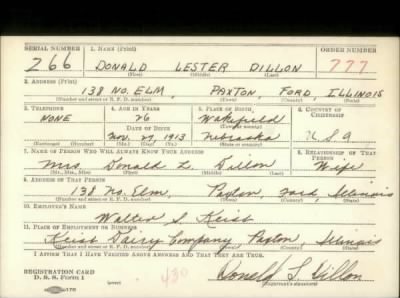 SERIAL NUMBER 1. NAME (Print) ORDER NUMBER
266 DONALD LESTER DILLON 777
(First) (Middle) (Last)
2. ADDRESS (Print)
138 NO. ELM, PAXTON, FORD, ILLINOIS
(Number and street or R. F. D. number) (Town) (County) (State)
3. TELEPHONE 4. AGE IN YEARS 5. PLACE OF BIRTH 6. COUNTRY OF CITIZENSHIP
NONE 26 Wakefield
DATE OF BIRTH (Town or county)
Nov. 27, 1913 Nebraska U.S.A
(Exchange) (Number) (Mo.) (Day) (Yr.) (State or country)
7. NAME OF PERSON WHO WILL ALWAYS KNOW YOUR ADDRESS 8. RELATIONSHIP OF THAT PERSON
Mrs. Donald L. Dillon Wife
(Mr., Mrs., Miss) (First) (Middle) (Last)
9. ADDRESS OF THAT PERSON
138 No. Elm, Paxton, Ford, Illinois
(Number and street or R. F. D. number) (Town) (County) (State)
10. EMPLOYER'S NAME
Walter S. Keist
11. PLACE OF EMPLOYMENT OR BUSINESS
Keist Dairy Company Paxton, Illinois
(Number and street or R. F. D. number) (Town) (County) (State)
I AFFIRM THAT I HAVE VERIFIED ABOVE ANSWERS AND THAT THEY ARE TRUE.
REGISTRATION CARD
D. S. S. FORM 1 430 Donald L. Dillon
(Registrant's signature)